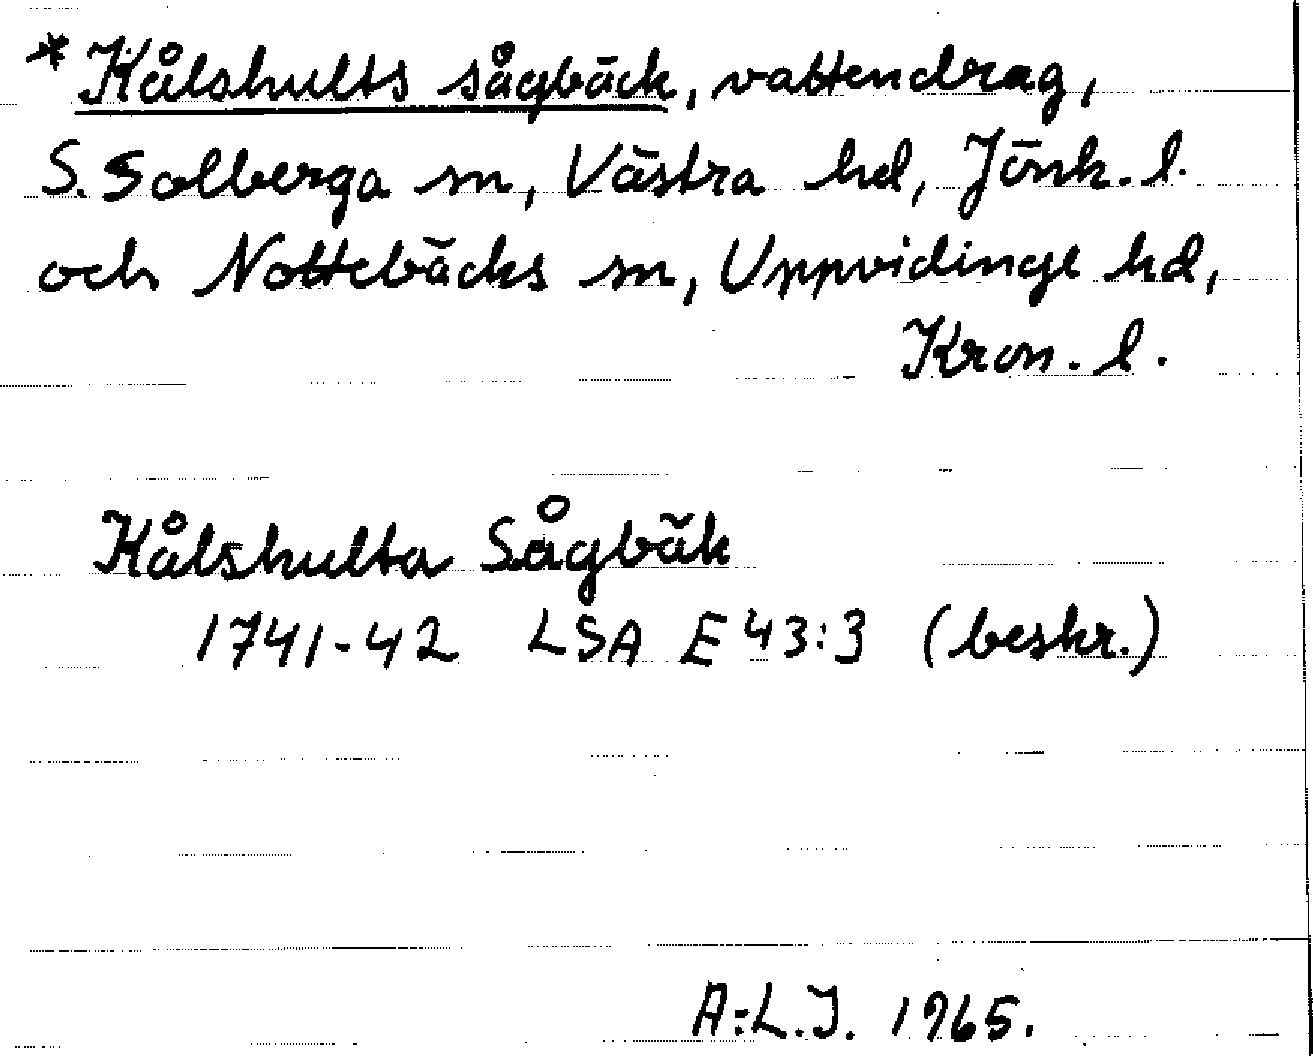 * Kålshults sågbäck, vattendrag,
S. Solberga sn, Västra hd, Jönk. l.
och Nottebäcks sn, Uppvidinge hd,
Kron. l.
Kålshulta Sågbäk
1741-42 LSA E 43:3 (beskr.)
A-L.J. 1965.